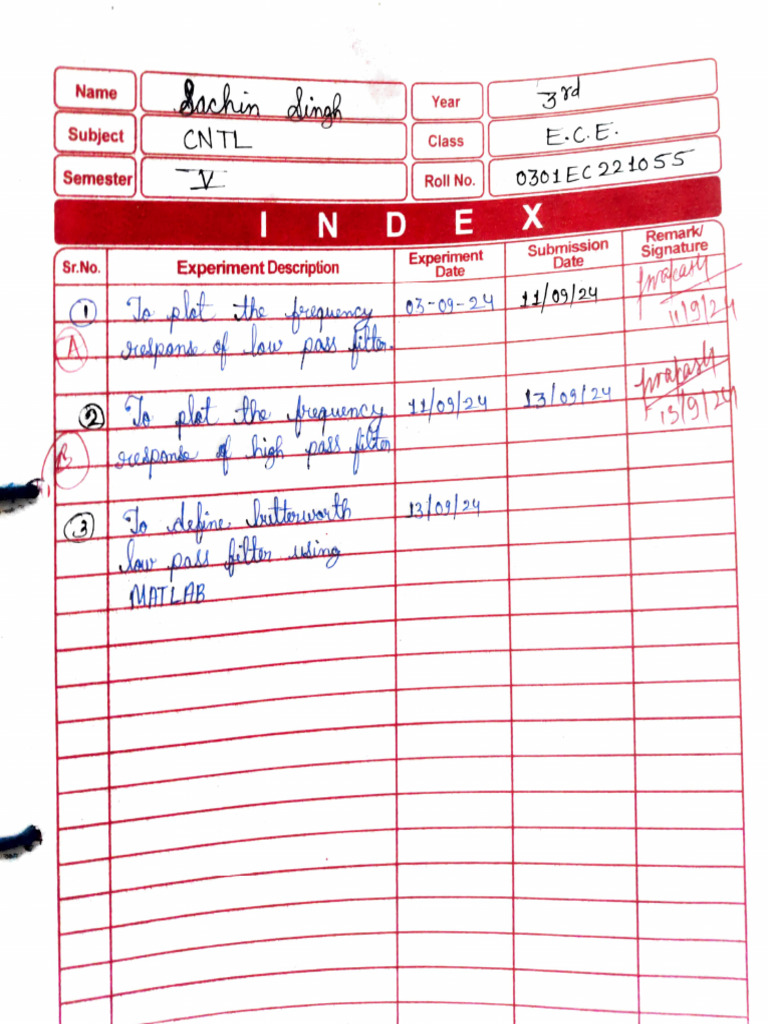 Name Sachin Singh Year 3rd
Subject CNTL Class E.C.E.
Semester V Roll No. 0301EC221055
INDEX
Sr.No. Experiment Description Experiment Date Submission Date Remark/ Signature
1 To plot the frequency 03-09-24 11/09/24 Prakash
A response of low pass filter. 11/9/24
2 To plot the frequency 11/09/24 13/09/24 Prakash
B response of high pass filter 13/9/24
3 To define butterworth 13/09/24
low pass filter using
MATLAB